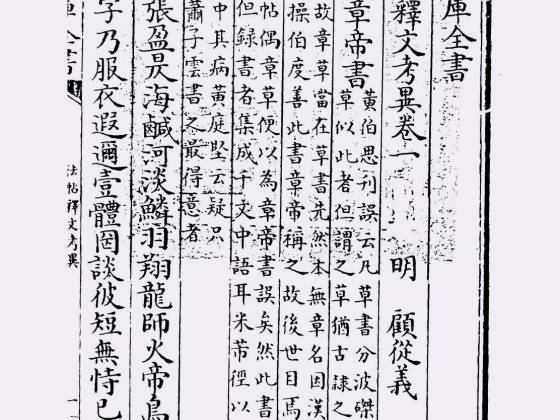 庫全書
釋文考異卷一
明 顧從義
章帝書
黄伯思刊誤云凡草書分波磔
草似此者但謂之草猶古隸之
故章草當在草書先然本無章名因漢
操伯度善此書章帝稱之故後世目焉
帖偶章草便以為章帝書誤矣然此書
但録書者集成千文中語耳米芾徑以
中其病黄庭堅云疑只
蕭子雲書之最得意者
張盈昃海鹹河淡鱗羽翔龍師火帝鳥
字乃服衣遐邇壹體罔談彼短無恃已
庫全書
法帖釋文考異